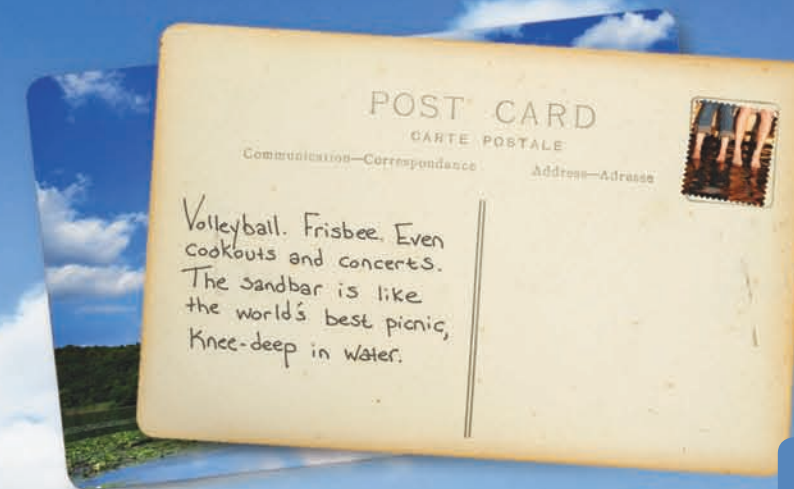 POST CARD
CARTE POSTALE
Communication—Correspondance
Address—Adresse
Volleyball. Frisbee. Even
cookouts and concerts.
The sandbar is like
the world's best picnic,
Knee-deep in water.